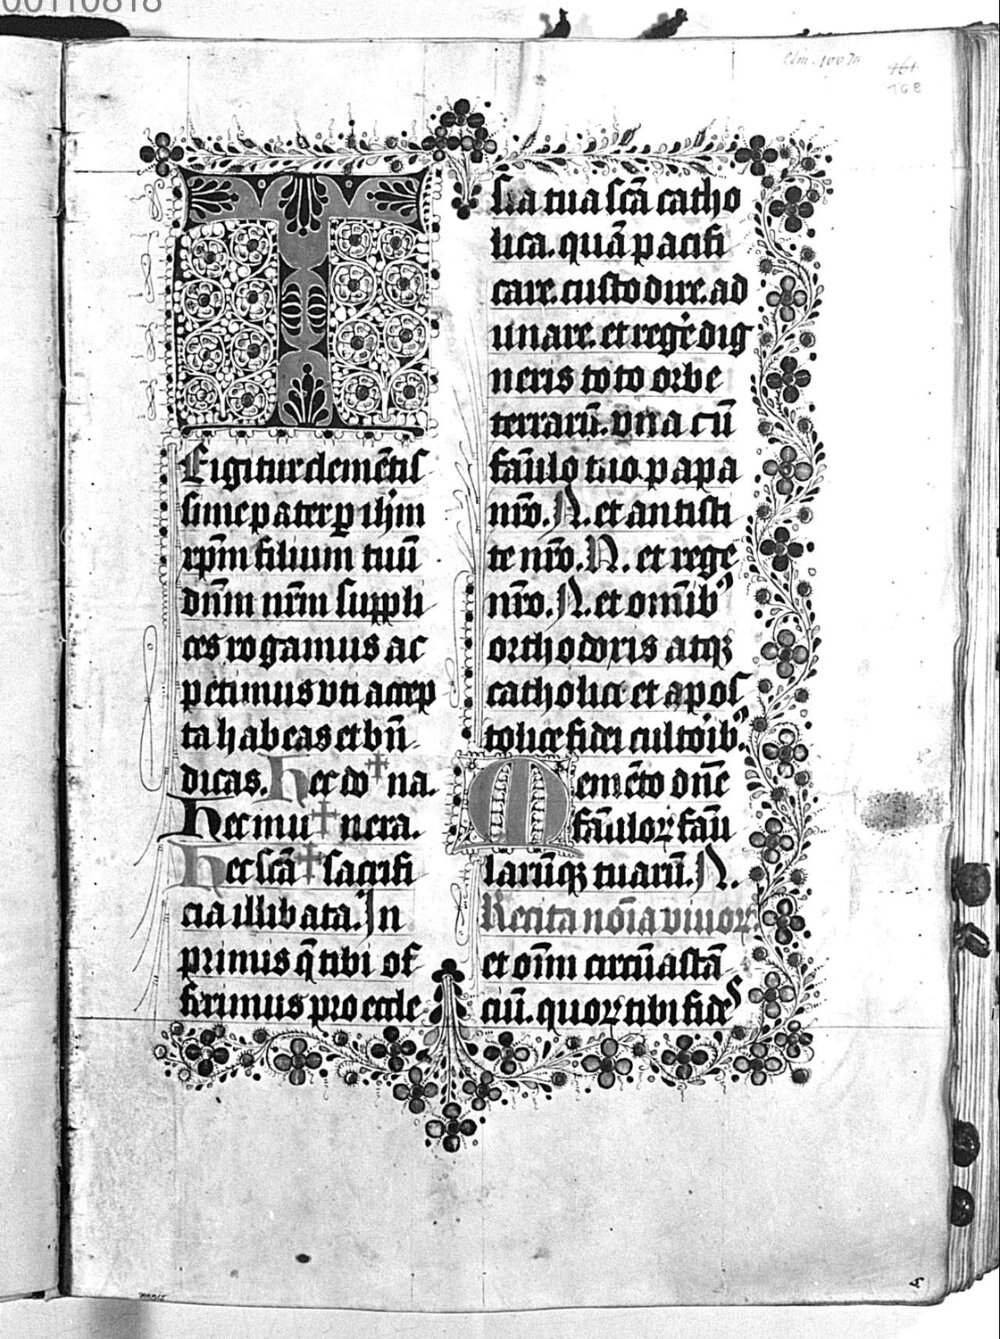 00110818
Clm. 10074
161
168
T
E igitur clemētis
sime pater p̱ ihm̄
xp̄m filium tuū
dn̄m nr̄m suppli
ces rogamus ac
petimus vti accep
ta habeas et bn̄
dicas. Hec do † na.
Hec mu † nera.
Hec scā † sacrifi
cia illibata. In
primis q̄ tibi of
ferimus pro eccle
sia tua scā catho
lica. quā pacifi
care. custodire. ad
unare. et regere dig
neris toto orbe
terrarū. vna cū
fāulo tuo. papa
nr̄o. N. et antisti
te nr̄o. N. et rege
nr̄o. N. et omīb⁹
orthodoxis atqꝫ
catholice et apos
tolice fidei cultorib⁹.
Memēto dn̄e
fāuloꝝ fāu
larūqꝫ tuarū. N.
Recita noīa viuoꝝ
et oīm circūastā
ciū. quoꝝ tibi fides